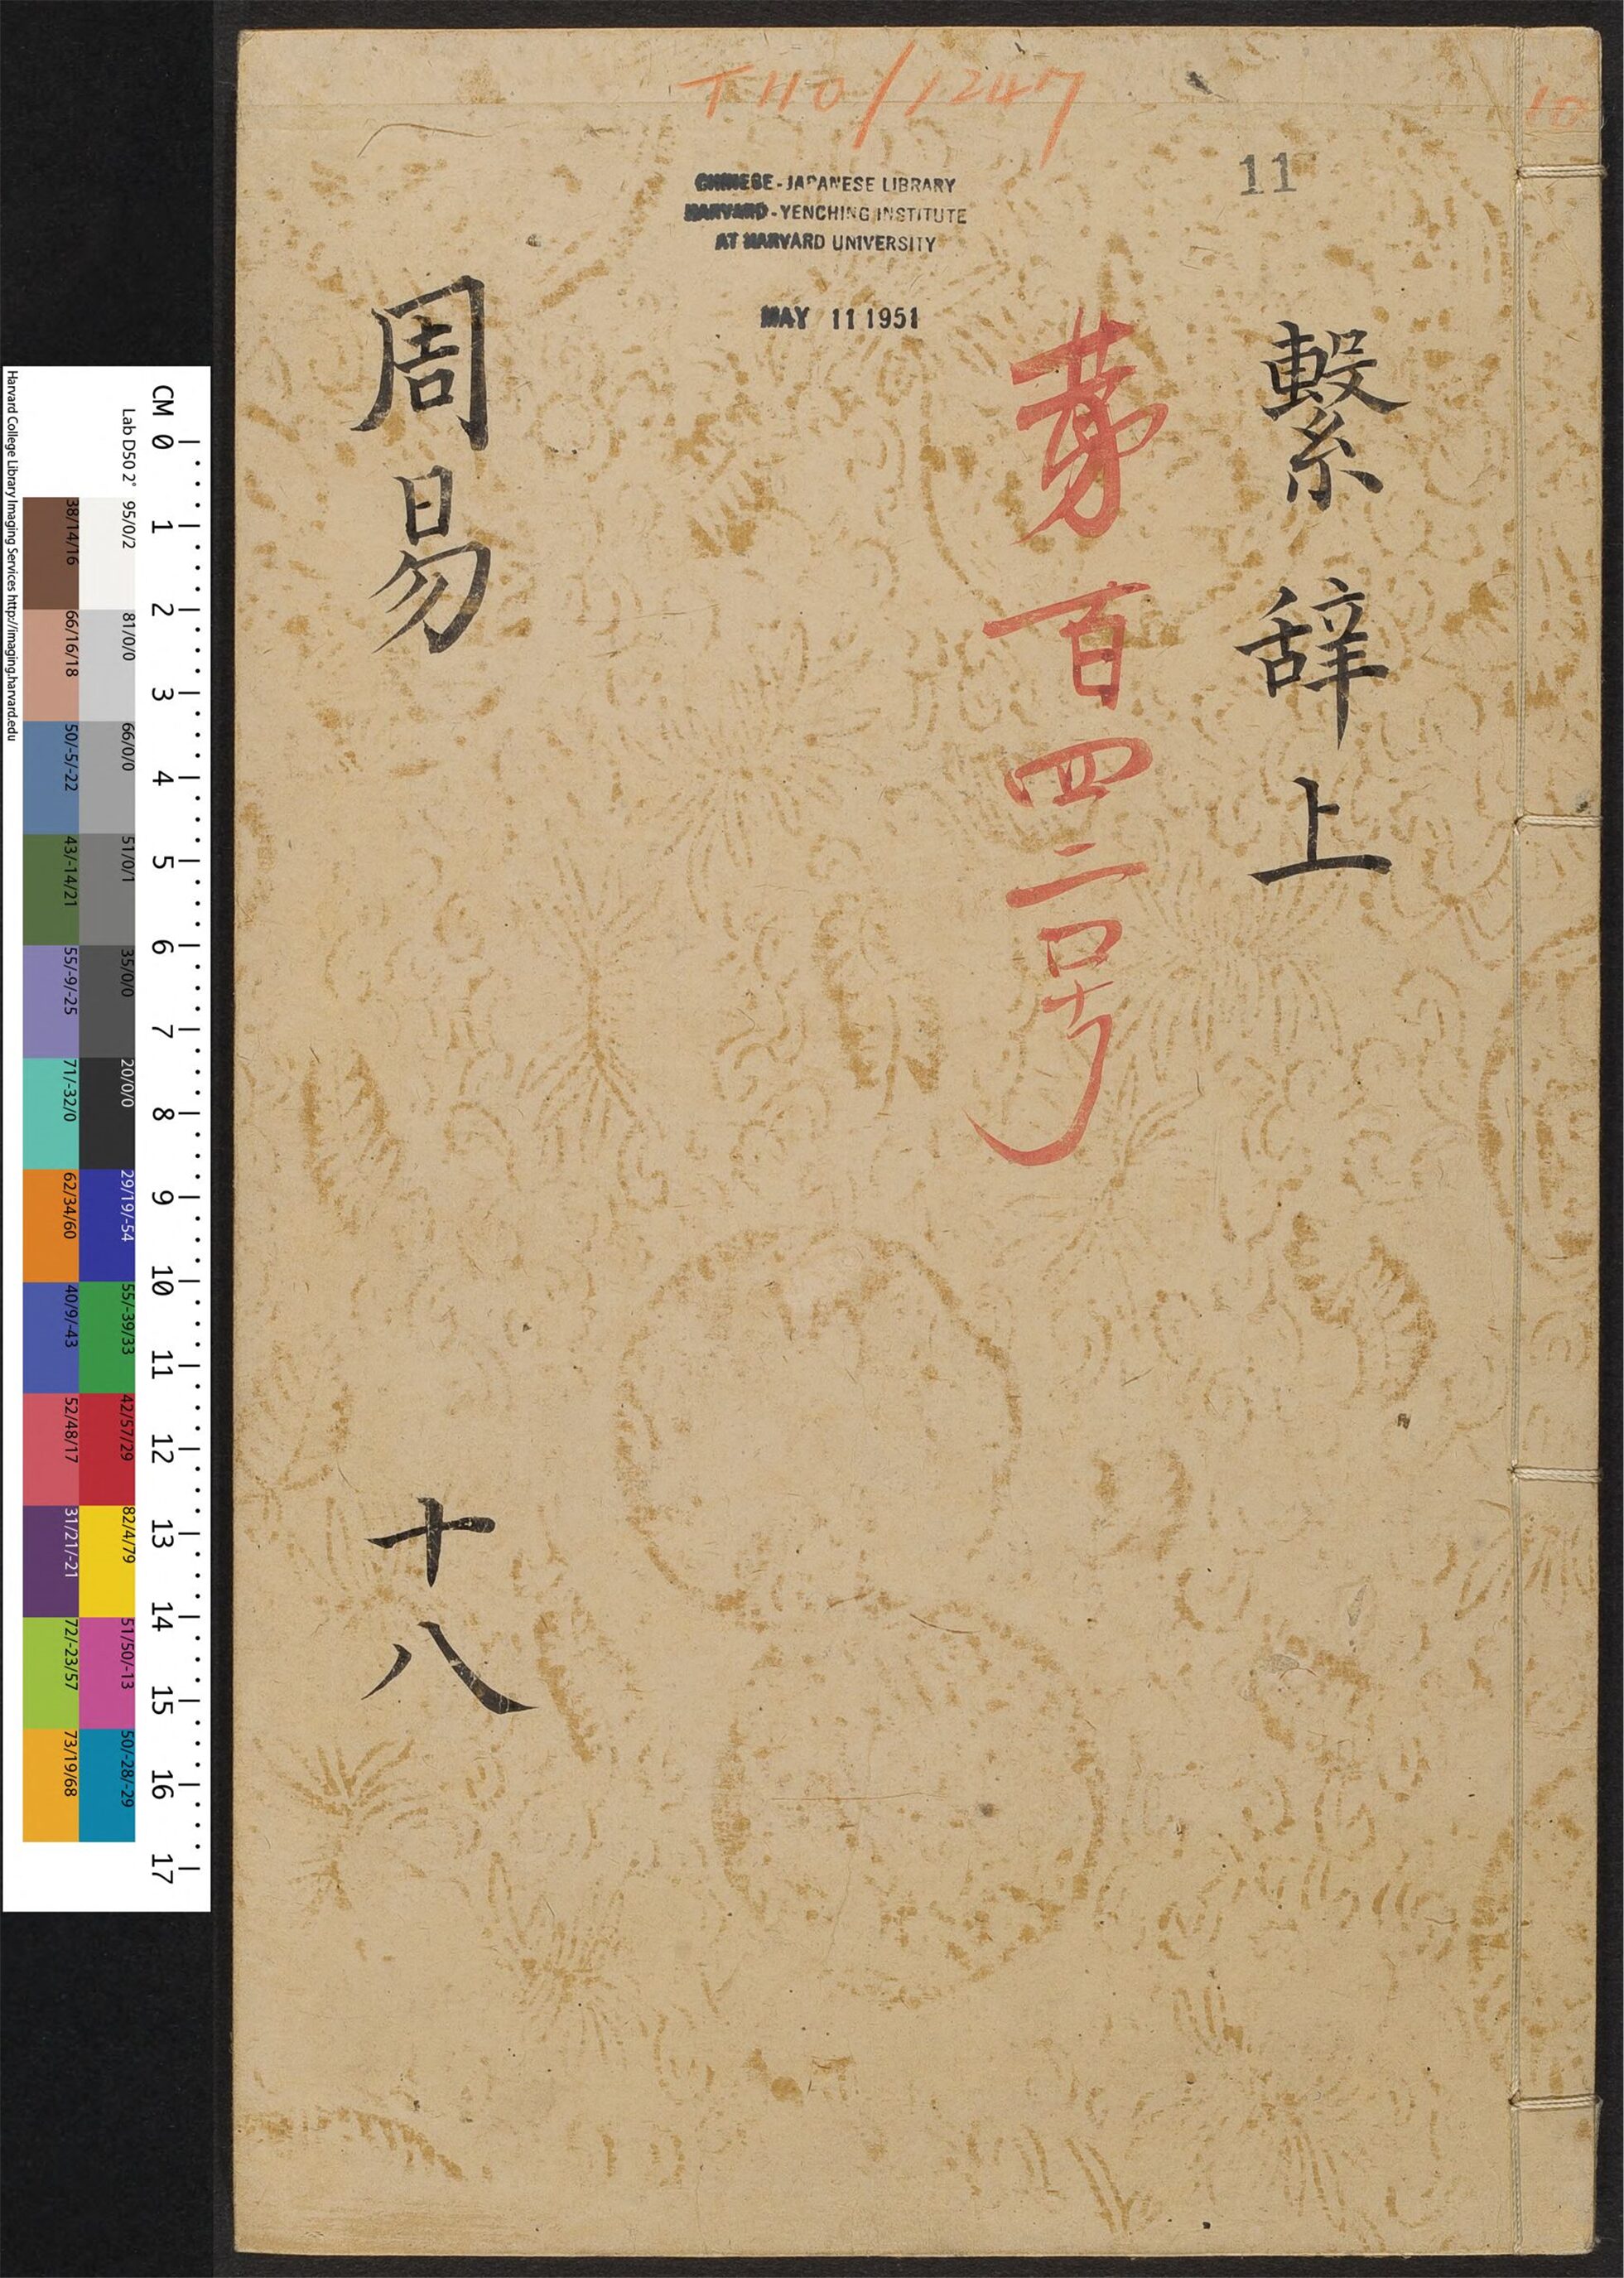 T 110/1247
10
11
CHINESE-JAPANESE LIBRARY
HARVARD-YENCHING INSTITUTE
AT HARVARD UNIVERSITY
MAY 11 1951
繫辭上
第百四二号
周易
十八
CM 0 1 2 3 4 5 6 7 8 9 10 11 12 13 14 15 16 17
Lab D50 2° 95/0/2 81/0/0 66/0/0 51/0/1 35/0/0 20/0/0 29/19/-54 55/-39/33 42/57/29 82/4/79 51/50/-13 50/-28/-29
38/14/16 66/16/18 50/-5/-22 43/-14/21 55/-9/-25 71/-32/0 62/34/60 40/9/-43 52/48/17 31/21/-21 72/-23/57 73/19/68
Harvard College Library Imaging Services http://imaging.harvard.edu